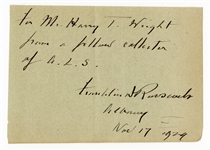 To Mr. Harry T. Wright
from a fellow collector
of A.L.S.
Franklin D Roosevelt
Albany
Nov 17 1929